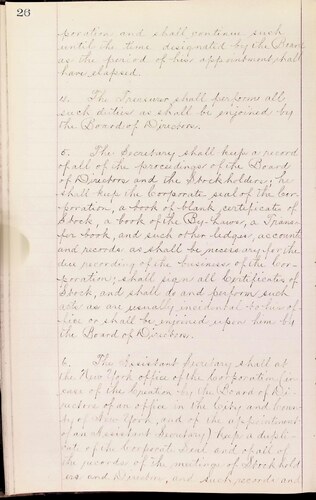 26
poration, and shall continue such
until the time designated by the Board
as the period of his appointment shall
have elapsed.
4. The Treasurer shall perform all
such duties as shall be enjoined by
the Board of Directors.
5. The Secretary shall keep a record
of all of the proceedings of the Board
of Directors and the Stockholders; he
shall keep the Corporate seal of the Cor-
poration, a book of blank certificates of
Stock, a book of the By-Laws, a Trans-
fer book, and such other ledger, account
and records as shall be necessary for the
due recording of the business of the Cor-
poration; shall sign all Certificates of
Stock, and shall do and perform such
acts as are usually incidental to his of-
fice or shall be enjoined upon him by
the Board of Directors.
6. The Assistant Secretary shall at
the New York office of the Corporation (in
case of the Creation by the Board of Di-
rectors of an office in the City and Coun-
ty of New York, and of the appointment
of an Assistant Secretary) keep a dupli-
cate of the Corporate Seal and of all of
the records of the meetings of Stockhold-
ers and Directors, and such records and